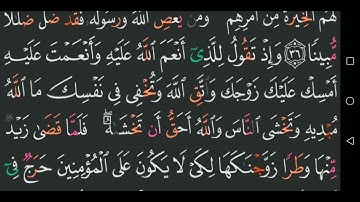 لَهُمُ ٱلْخِيَرَةُ مِنْ أَمْرِهِمْ ۗ وَمَن يَعْصِ ٱللَّهَ وَرَسُولَهُۥ فَقَدْ ضَلَّ ضَلَـٰلًا
مُّبِينًا ٣٦ وَإِذْ تَقُولُ لِلَّذِىٓ أَنْعَمَ ٱللَّهُ عَلَيْهِ وَأَنْعَمْتَ عَلَيْهِ
أَمْسِكْ عَلَيْكَ زَوْجَكَ وَٱتَّقِ ٱللَّهَ وَتُخْفِى فِى نَفْسِكَ مَا ٱللَّهُ
مُبْدِيهِ وَتَخْشَى ٱلنَّاسَ وَٱللَّهُ أَحَقُّ أَن تَخْشَىٰهُ ۖ فَلَمَّا قَضَىٰ زَيْدٌ
مِّنْهَا وَطَرًا زَوَّجْنَـٰكَهَا لِكَىْ لَا يَكُونَ عَلَى ٱلْمُؤْمِنِينَ حَرَجٌ فِىٓ